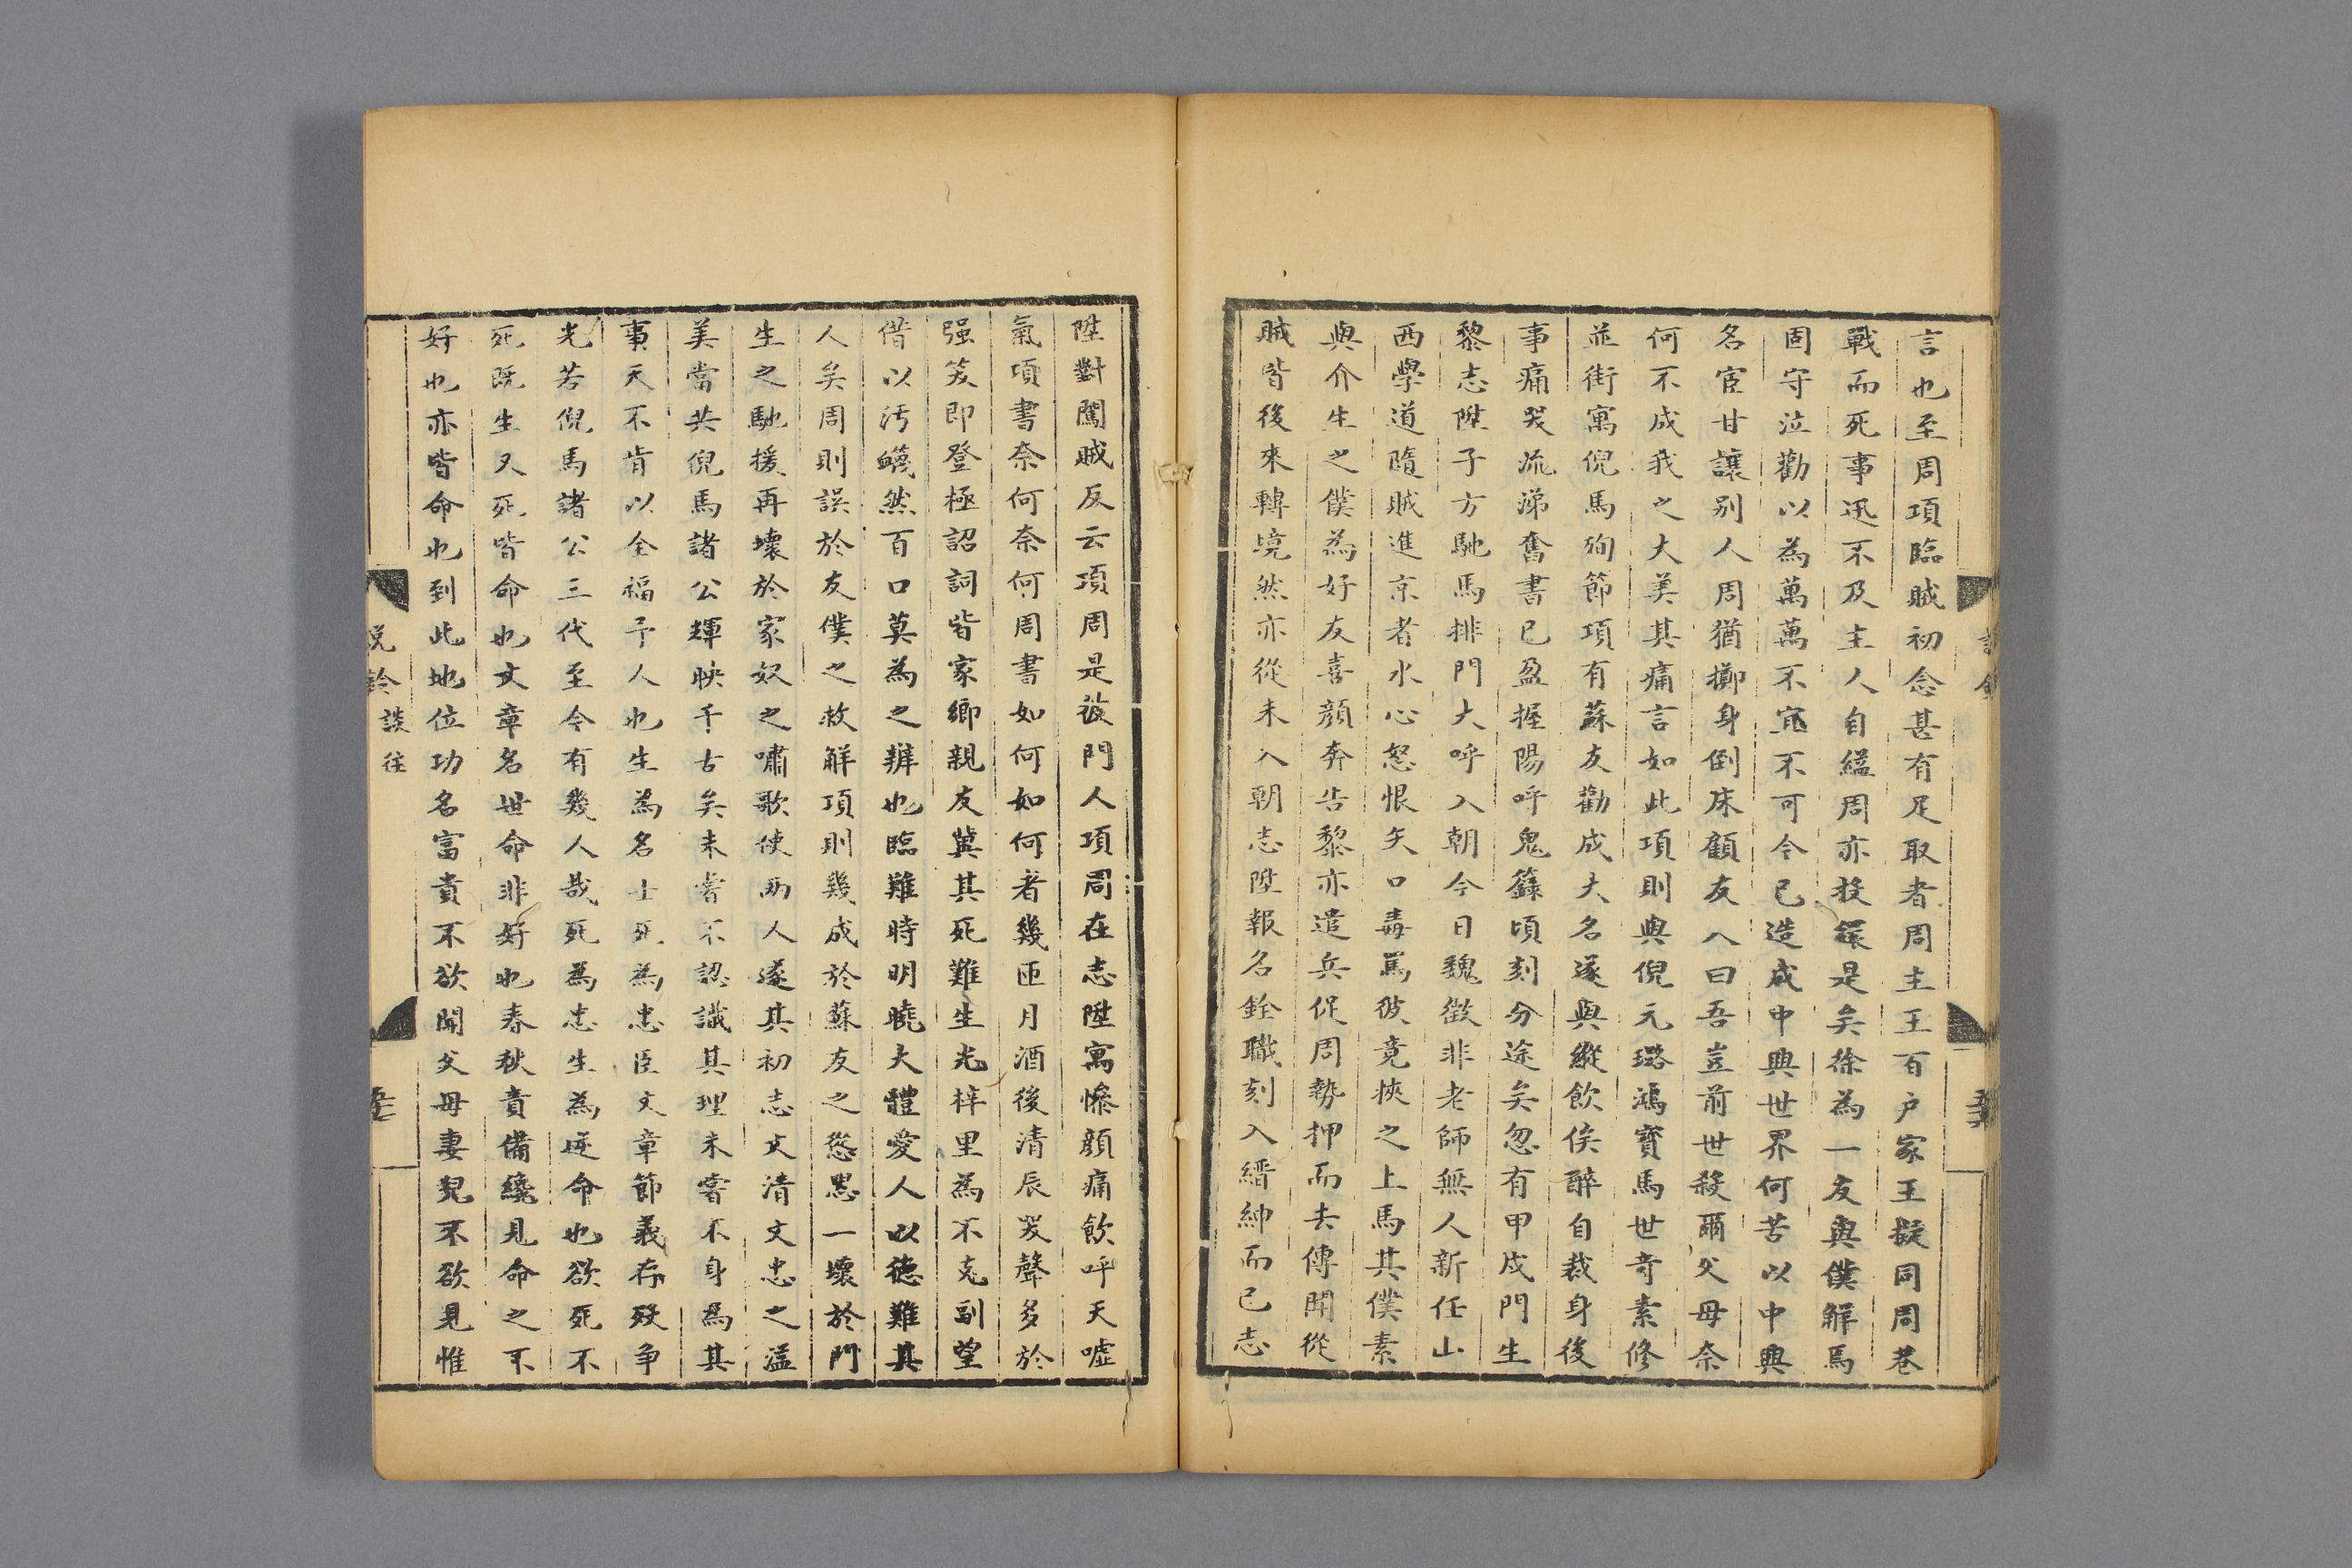 言也至周項臨賊初念甚有足取者周主王百户家王擬同周巷
戰而死事迅不及主人自縊周亦投繯是矣徐為一友與僕解焉
固守泣勸以為萬萬不寃不可令已造成中興世界何苦以中興
名宦甘讓别人周猶擲身倒床顧友人曰吾豈前世殺爾父母奈
何不成我之大美其痛言如此項則與倪元璐鴻寳馬世竒素修
並街寓倪馬殉節項有蘇友勸成大名遂與縱飲俟醉自裁身後
事痛哭流涕奮書已盈握陽呼鬼籙頃刻分途矣忽有甲戌門生
黎志陞子方馳馬排門大呼入朝今日魏徵非老師無人新任山
西學道隨賊進京者水心怒恨矢口毒罵彼竟挾之上馬其僕素
與介生之僕為好友喜顔奔告黎亦遣兵促周勢押而去傳聞從
賊皆後來轉境然亦從未入朝志陞報名銓職刻入縉紳而已志
陞對闖賊反云項周是彼門人項周在志陞寓慘顔痛飲呼天嘘
氣項書奈何奈何周書如何如何者幾匝月酒後清辰哭聲多於
强笑即登極詔詞皆家鄉親友冀其死難生光梓里為不克副望
借以汚衊然百口莫為之辨也臨難時明曉大體愛人以德難其
人矣周則誤於友僕之救解項則幾成於蘇友之慫恿一壞於門
生之馳援再壞於家奴之嘯歌使兩人遂其初志文清文忠之謚
美當共倪馬諸公輝映千古矣未嘗不認識其理未嘗不身為其
事天不肯以全福予人也生為名士死為忠臣文章節義存歿争
光若倪馬諸公三代至今有幾人哉死為忠生為逆命也欲死不
死既生又死皆命也文章名世命非好也春秋責備纔見命之不
好也亦皆命也到此地位功名富貴不欲聞父母妻兒不欲見惟
説鈴 談往